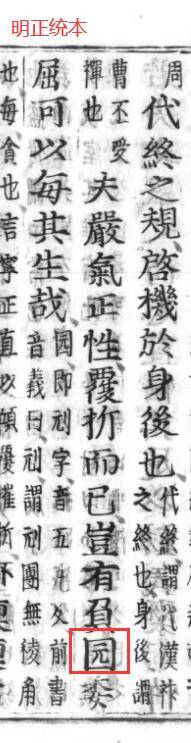 明正统本
周
代終之規啓機於身後也
代終謂代漢祚
之終也身後謂
曹丕受
禪也
夫嚴氣正性覆折而已豈有員园委
屈可以每其生哉
园即刓字音五丸反前書
音義曰刓謂刓團無稜角
也每貪也言寧正直以傾覆摧折不